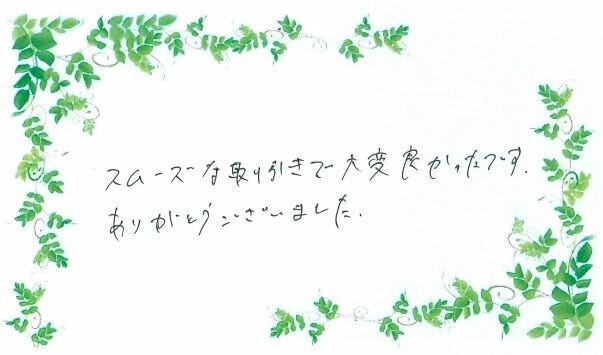 スムーズな取り引きで大変良かったです.
ありがとうございました.